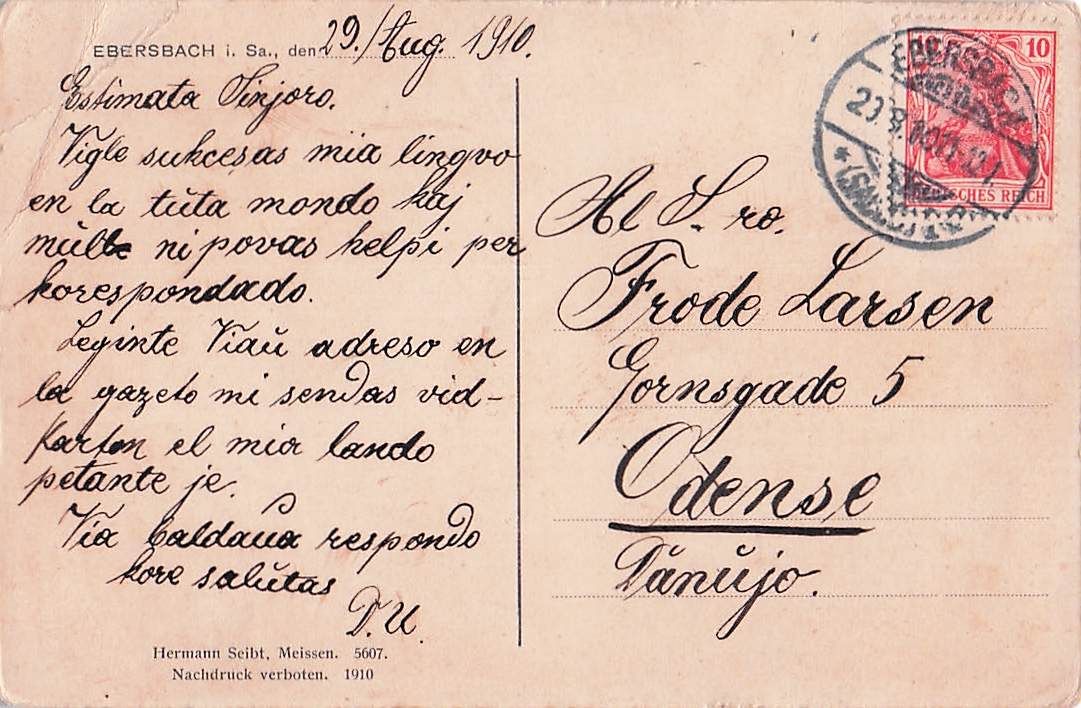 EBERSBACH i. Sa., den 29./Aug. 1910.
Estimata Sinjoro.
Vigle sukcesas mia lingvo
en la tŭta mondo kaj
mŭlte ni povas helpi per
korespondado.
Leginte Viaŭ adreso en
la gazeto mi sendas vid-
karton el mia lando
petante je
Via baldaŭa respondo
kore salŭtas
D. U.
Hermann Seibt, Meissen. 5607.
Nachdruck verboten. 1910
10
EBERSBACH
DEUTSCHES REICH
Al S. ro.
Frode Larsen
Gornsgade 5
Odense
Dänŭjo.